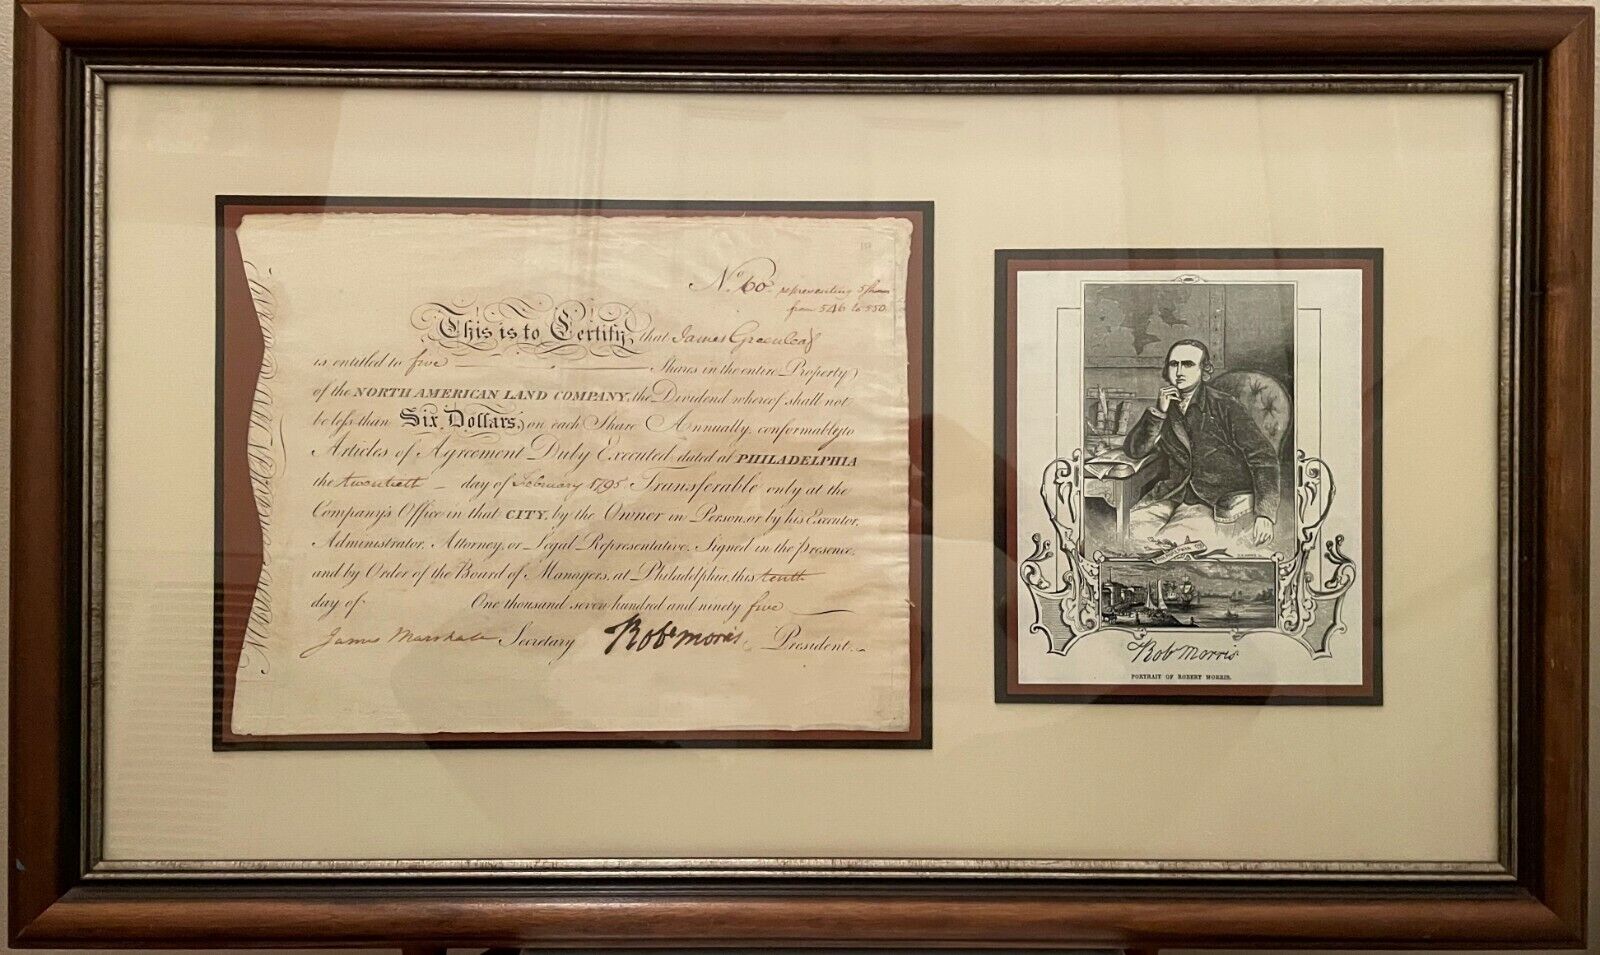 No. 60. representing 5 Shares
from 546 to 550
This is to Certify, that James Greenleaf
is entitled to five Shares in the entire Property
of the NORTH AMERICAN LAND COMPANY, the Dividend whereof shall not
be less than Six Dollars, on each Share Annually, conformably to
Articles of Agreement Duly Executed dated at PHILADELPHIA
the twentieth day of February 1795 Transferable only at the
Company's Office in that CITY, by the Owner in Person, or by his Executor,
Administrator, Attorney, or Legal Representative. Signed in the presence,
and by Order of the Board of Managers, at Philadelphia, this tenth
day of One thousand seven hundred and ninety five
James Marshall Secretary Robt Morris President.
Robt Morris
PORTRAIT OF ROBERT MORRIS.